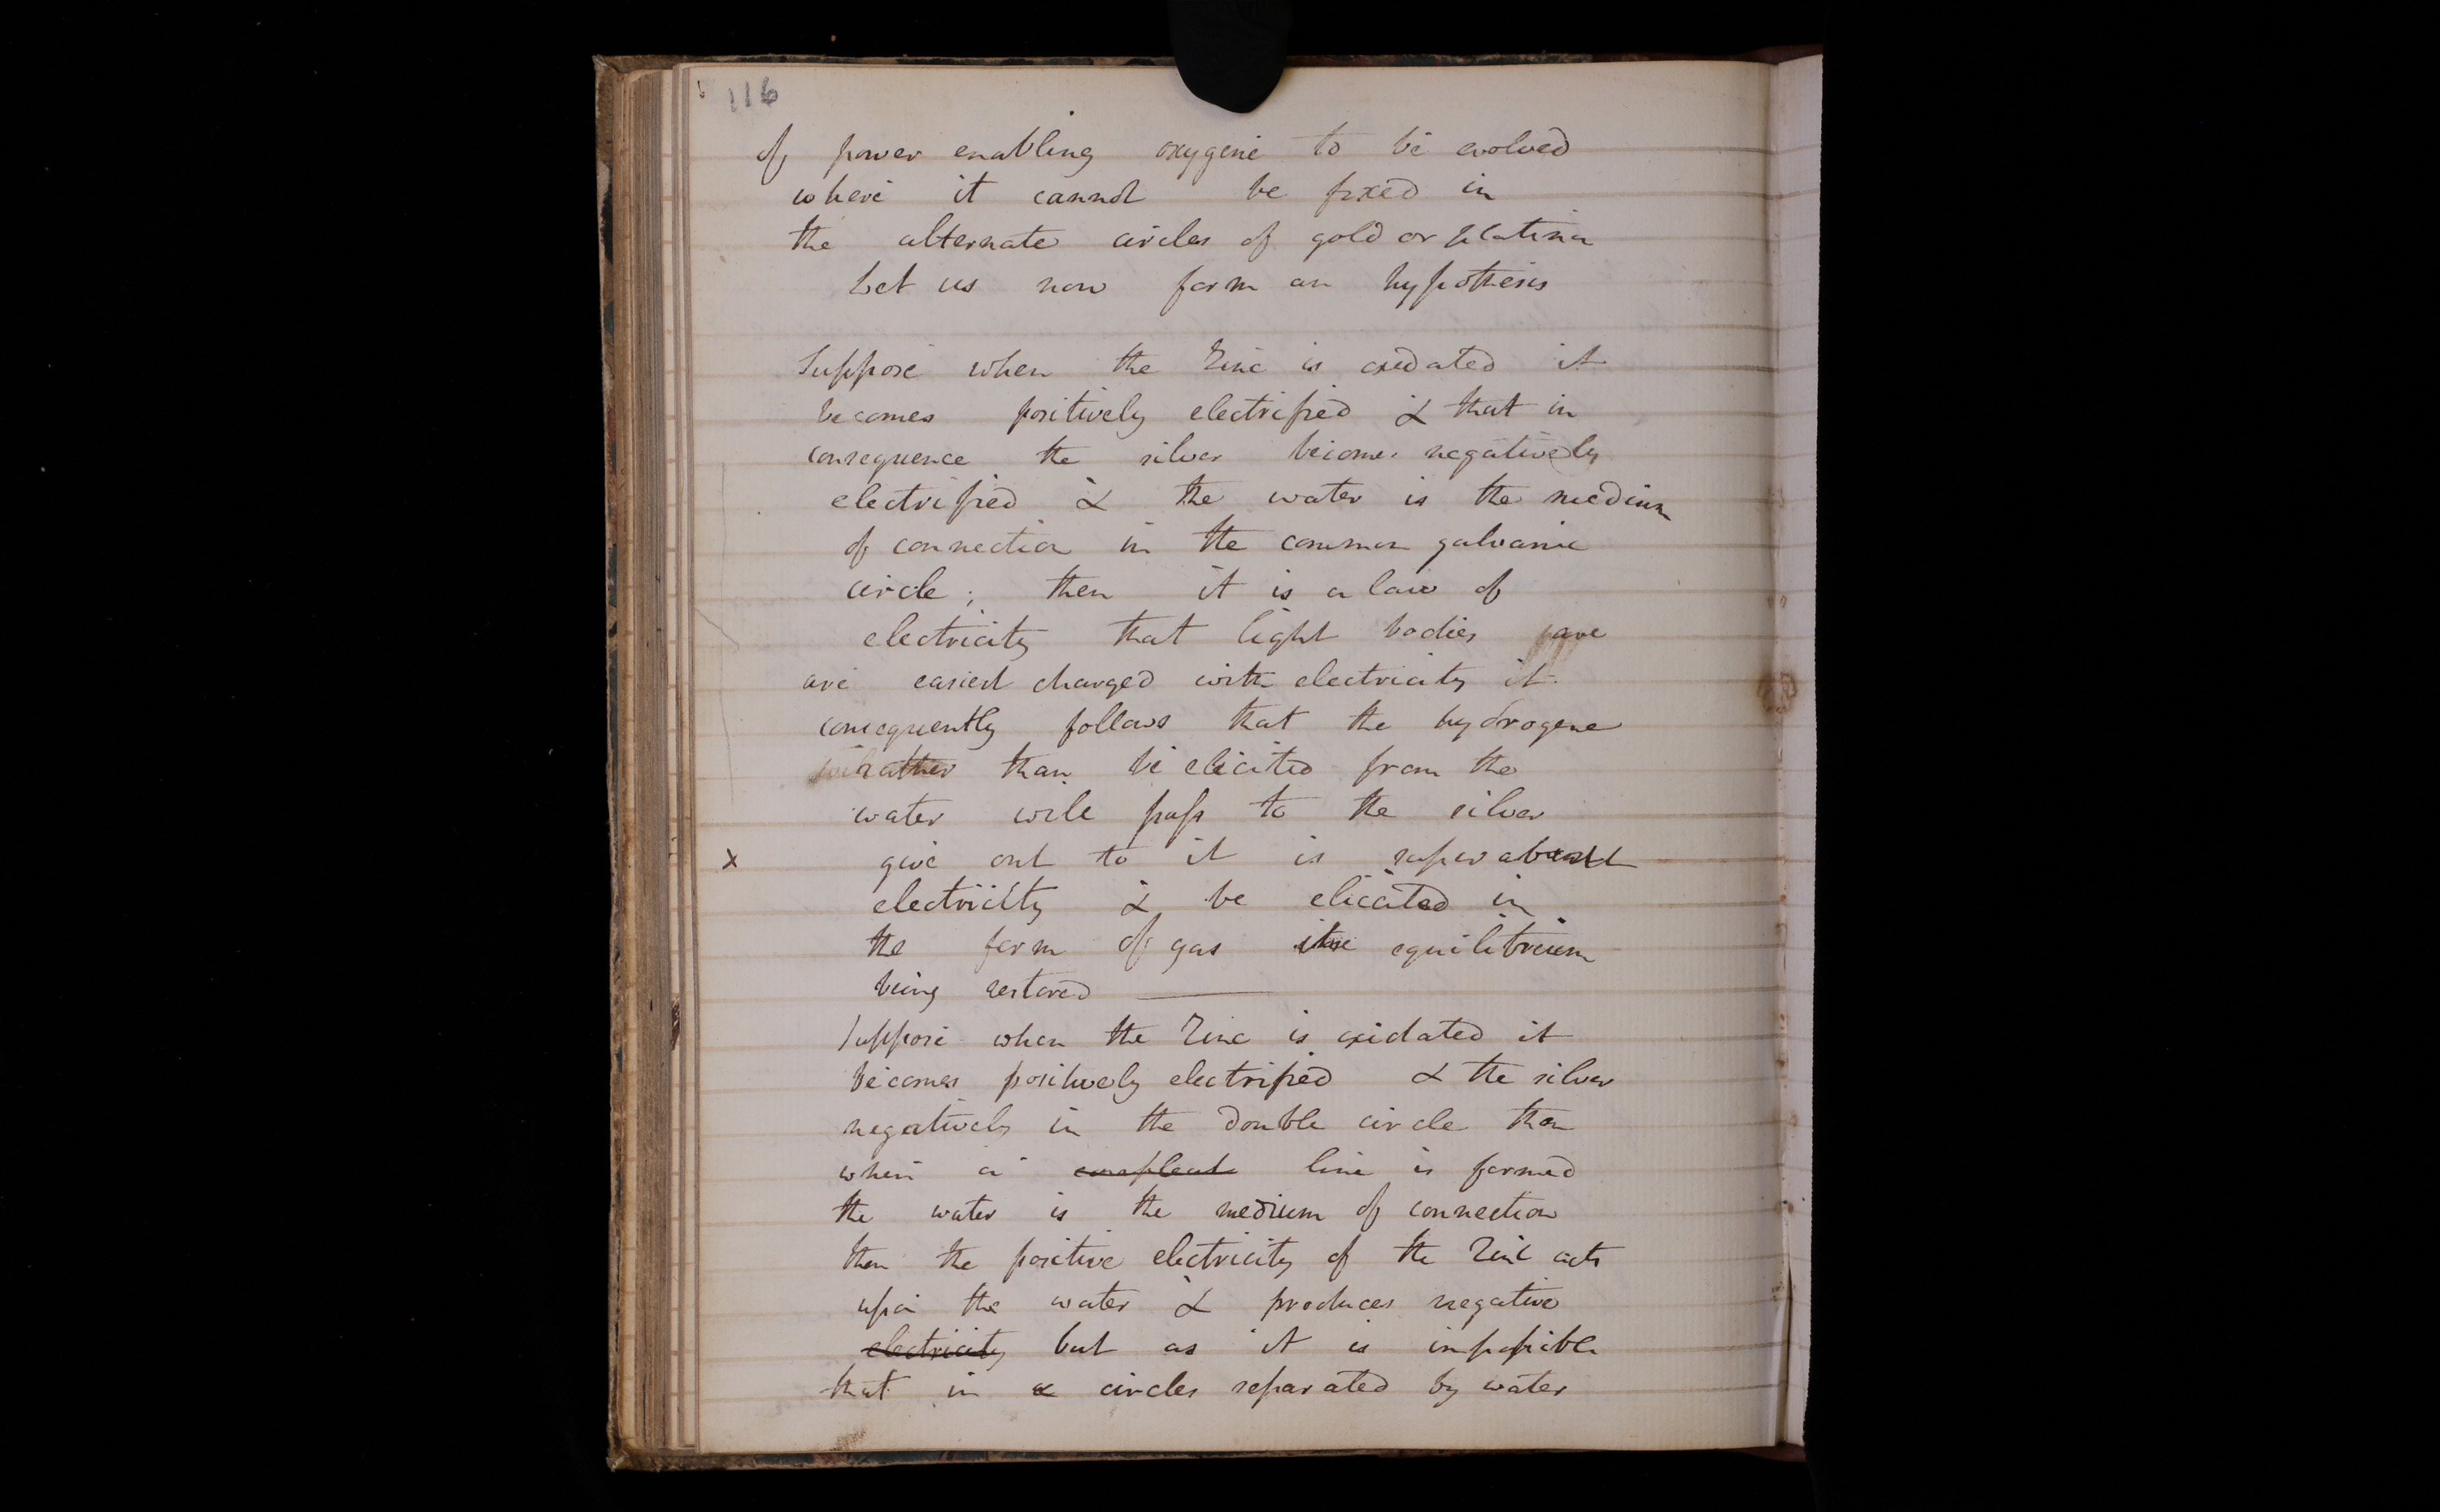 116
of power enabling oxygene to be evolved
where it cannot be fixed in
the alternate circles of gold or platina
Let us now form an hypothesis
Suppose when the Zinc is oxidated it
becomes positively electrified & that in
consequence the silver becomes negatively
electrified & the water is the medium
of connection in the common galvanic
circle; then it is a law of
electricity that light bodies
are easiest charged with electricity it
consequently follows that the hydrogene
rather than be elicited from the
water will pass to the silver
x give out to it is superabundt
electricity & be elicited in
the form of gas the equilibrium
being restored
Suppose when the Zinc is oxidated it
becomes positively electrified & the silver
negatively in the double circle then
when a compleat line is formed
the water is the medium of connection
then the positive electricity of the Zinc acts
upon the water & produces negative
electricity but as it is impossible
that in a circles separated by water